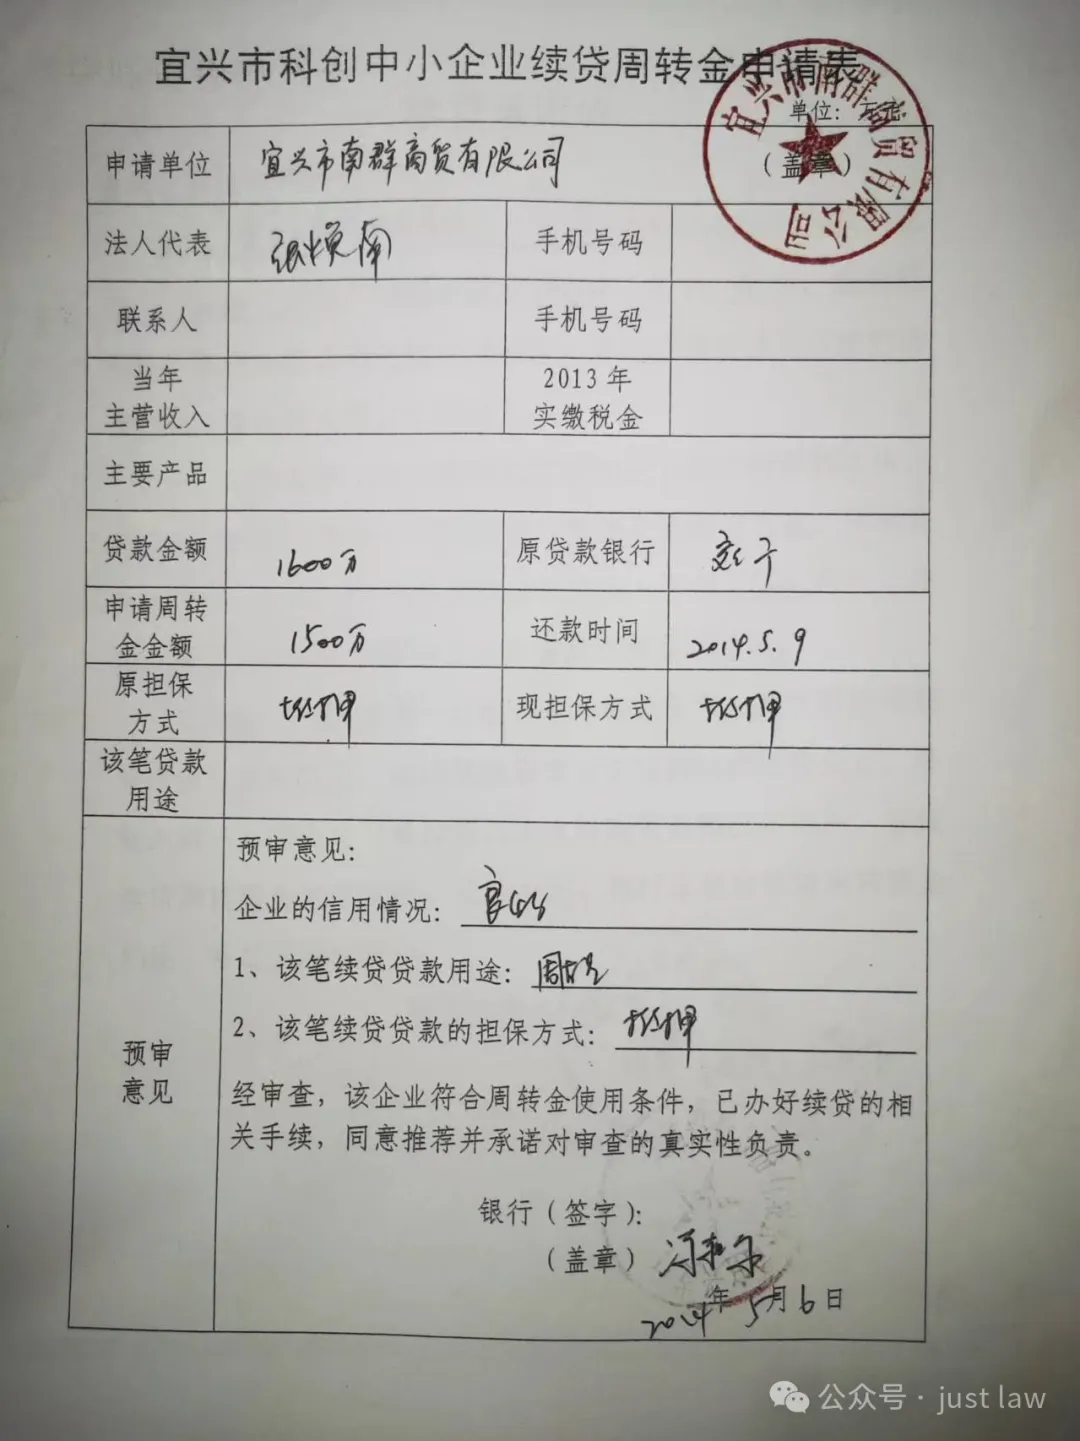 宜兴市科创中小企业续贷周转金申请表
单位：万元
申请单位 宜兴市南群商贸有限公司 （盖章）
宜兴市南群商贸有限公司
法人代表 手机号码
联系人 手机号码
当年 2013 年
主营收入 实缴税金
主要产品
贷款金额 1600万 原贷款银行
申请周转 还款时间
金金额 1500万 2014.5.9
原担保 现担保方式
方式 抵押 抵押
该笔贷款
用途
预审意见：
企业的信用情况：
1、该笔续贷贷款用途：
2、该笔续贷贷款的担保方式：抵押
预审
意见
经审查，该企业符合周转金使用条件，已办好续贷的相
关手续，同意推荐并承诺对审查的真实性负责。
银行（签字）：
（盖章）
2014年5月6日
公众号 · just law